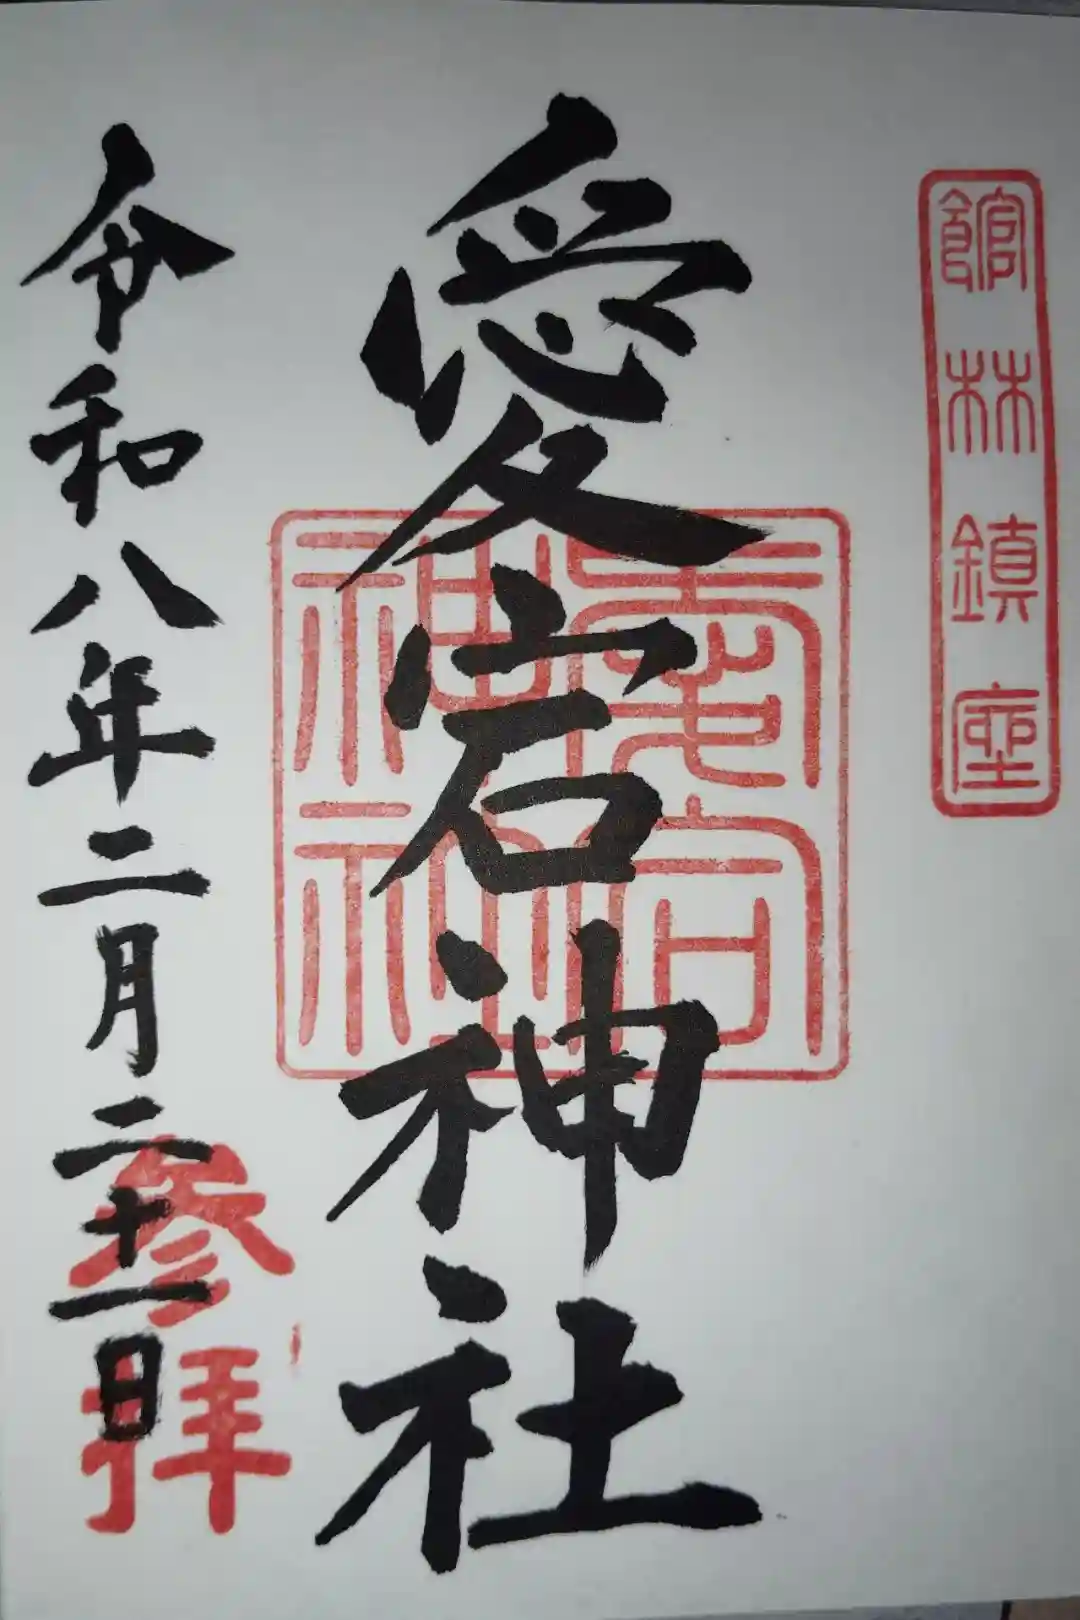 館林鎮座
愛宕神社
愛宕
神社
令和八年二月二十一日
参拝